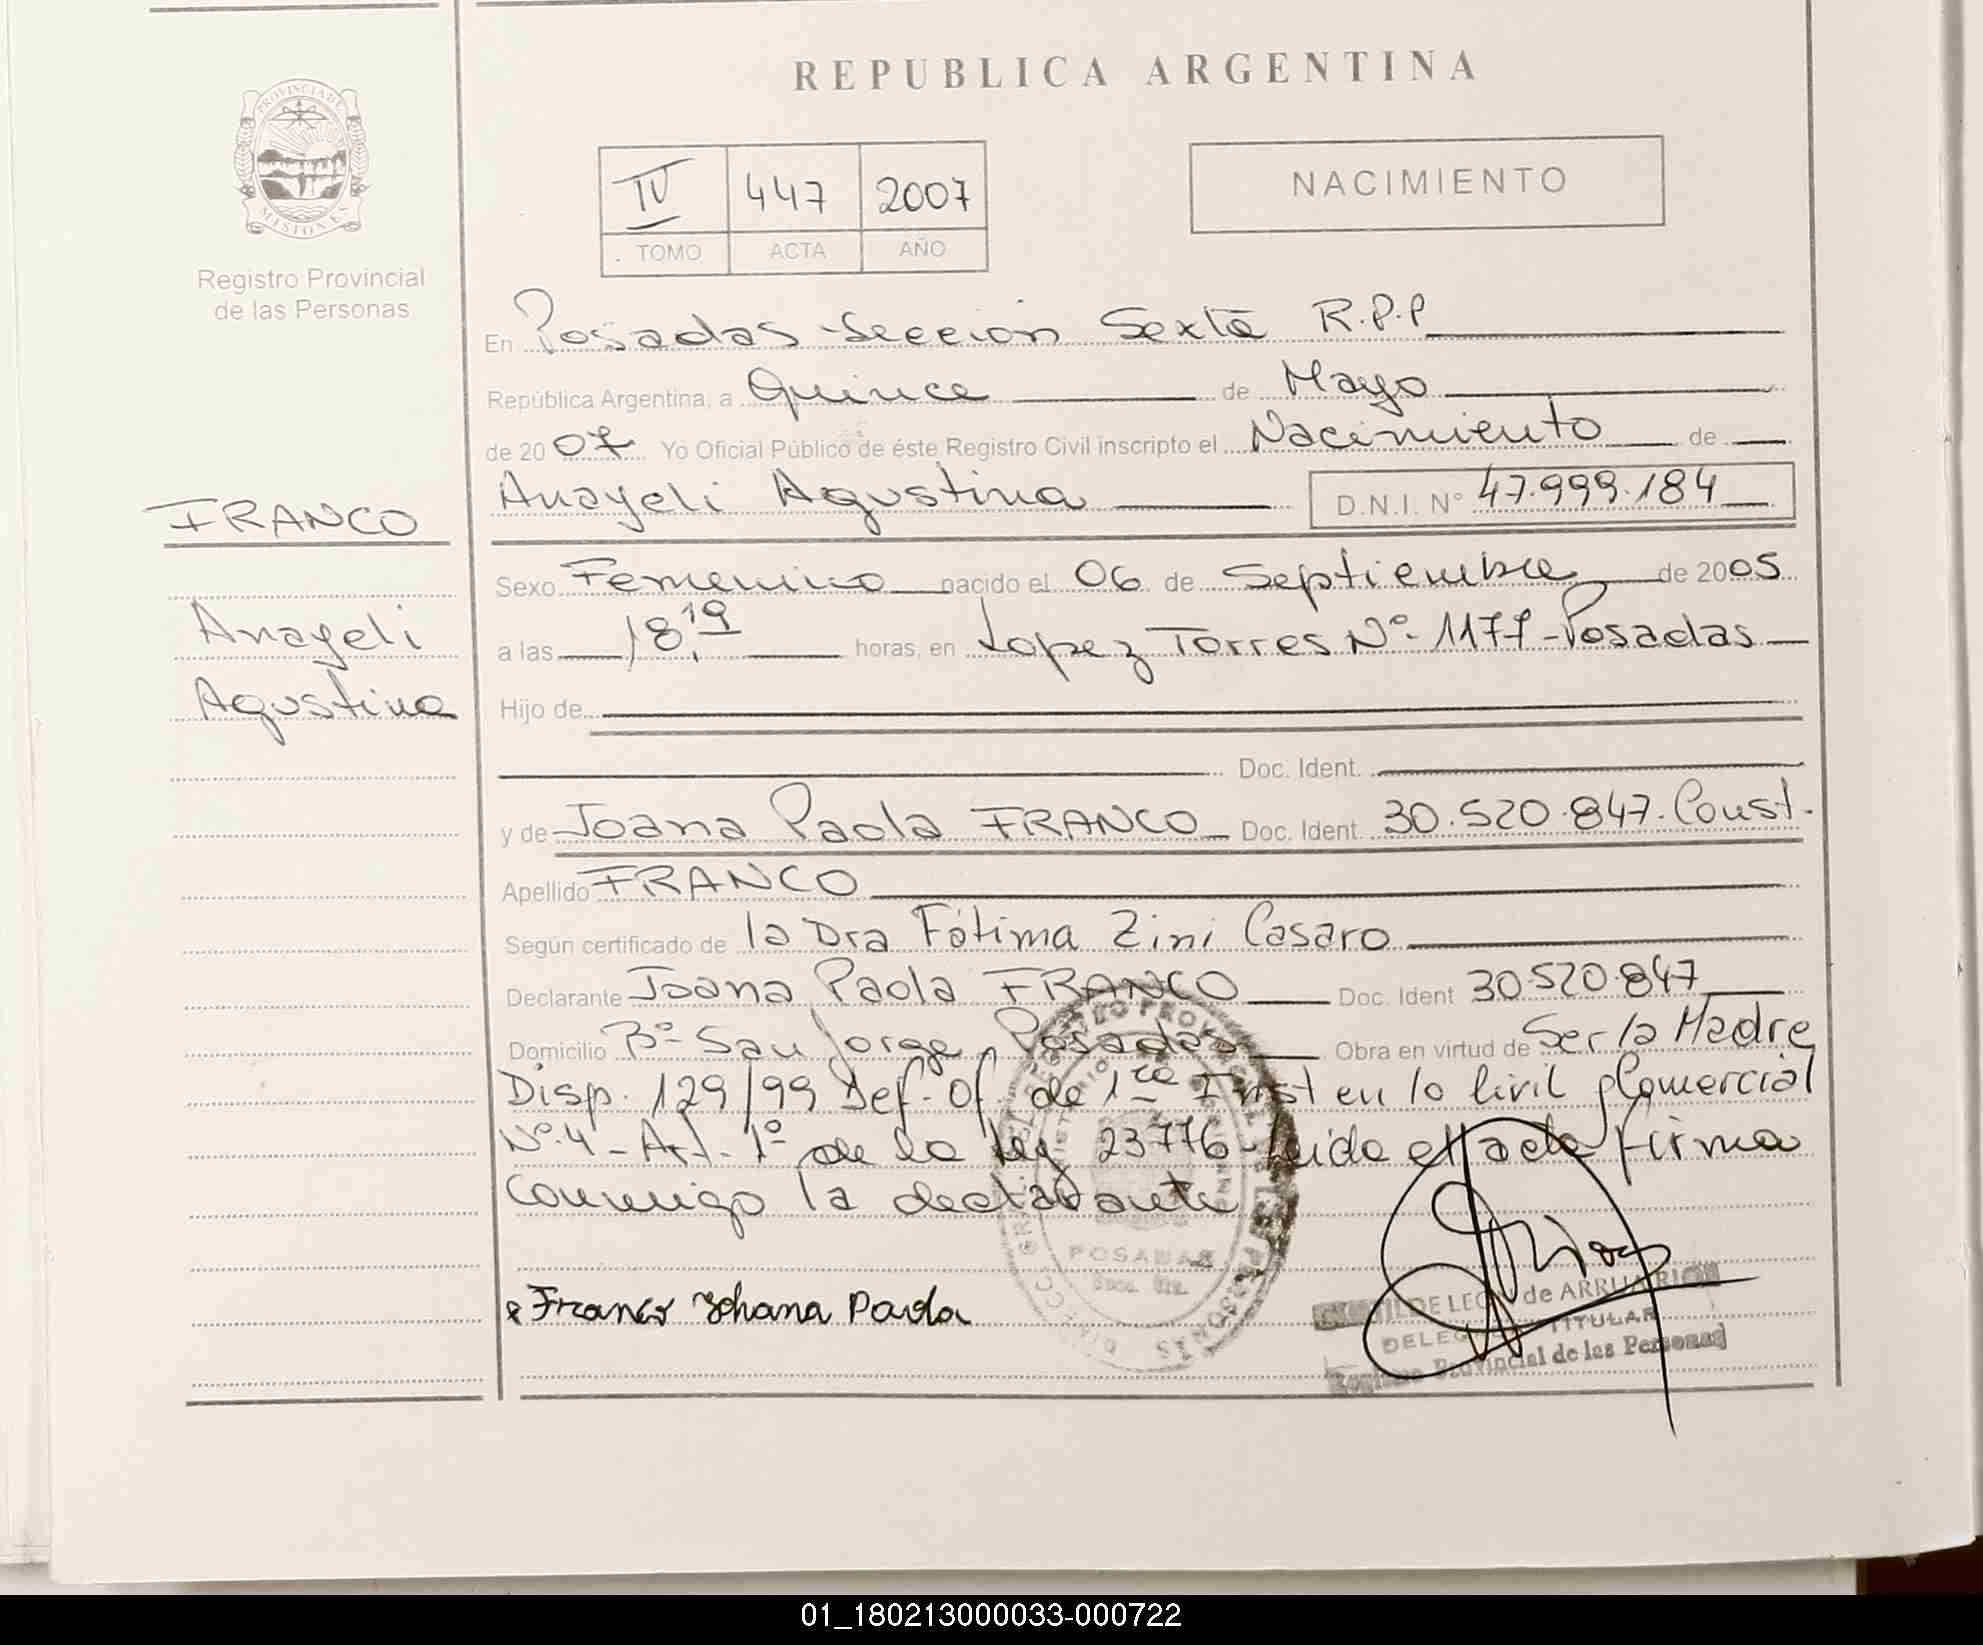 REPUBLICA ARGENTINA
PROVINCIA DE
MISIONES
Registro Provincial
de las Personas
IV 447 2007
TOMO ACTA AÑO
NACIMIENTO
En Posadas - Seccion Sexta R.P.P
República Argentina, a Quince de Mayo
de 2007 Yo Oficial Público de éste Registro Civil inscripto el Nacimiento de
Anayeli Agustina D.N.I. N° 47.999.184
FRANCO
Anayeli
Agustina
Sexo Femenino nacido el 06 de Septiembre de 2005
a las 18,19 horas, en Lopez Torres Nº 1177 - Posadas
Hijo de
Doc. Ident.
y de Joana Paola FRANCO Doc. Ident 30.520.847. Const.
Apellido FRANCO
Según certificado de la Dra Fátima Zini Casaro
Declarante Joana Paola FRANCO Doc. Ident 30.520.847
Domicilio Bº San Jorge Posadas Obra en virtud de Ser la Madre
Disp. 129/99 Def. Of. de 1ra Inst en lo Civil y Comercial
Nº 4 - Art. 1º de la ley 23776 - Leida el acta firma
conmigo la declarante
POSADAS
Franco Johana Paola
DE LEON de ARRUA
TITULAR
Registro Provincial de las Personas
01_180213000033-000722